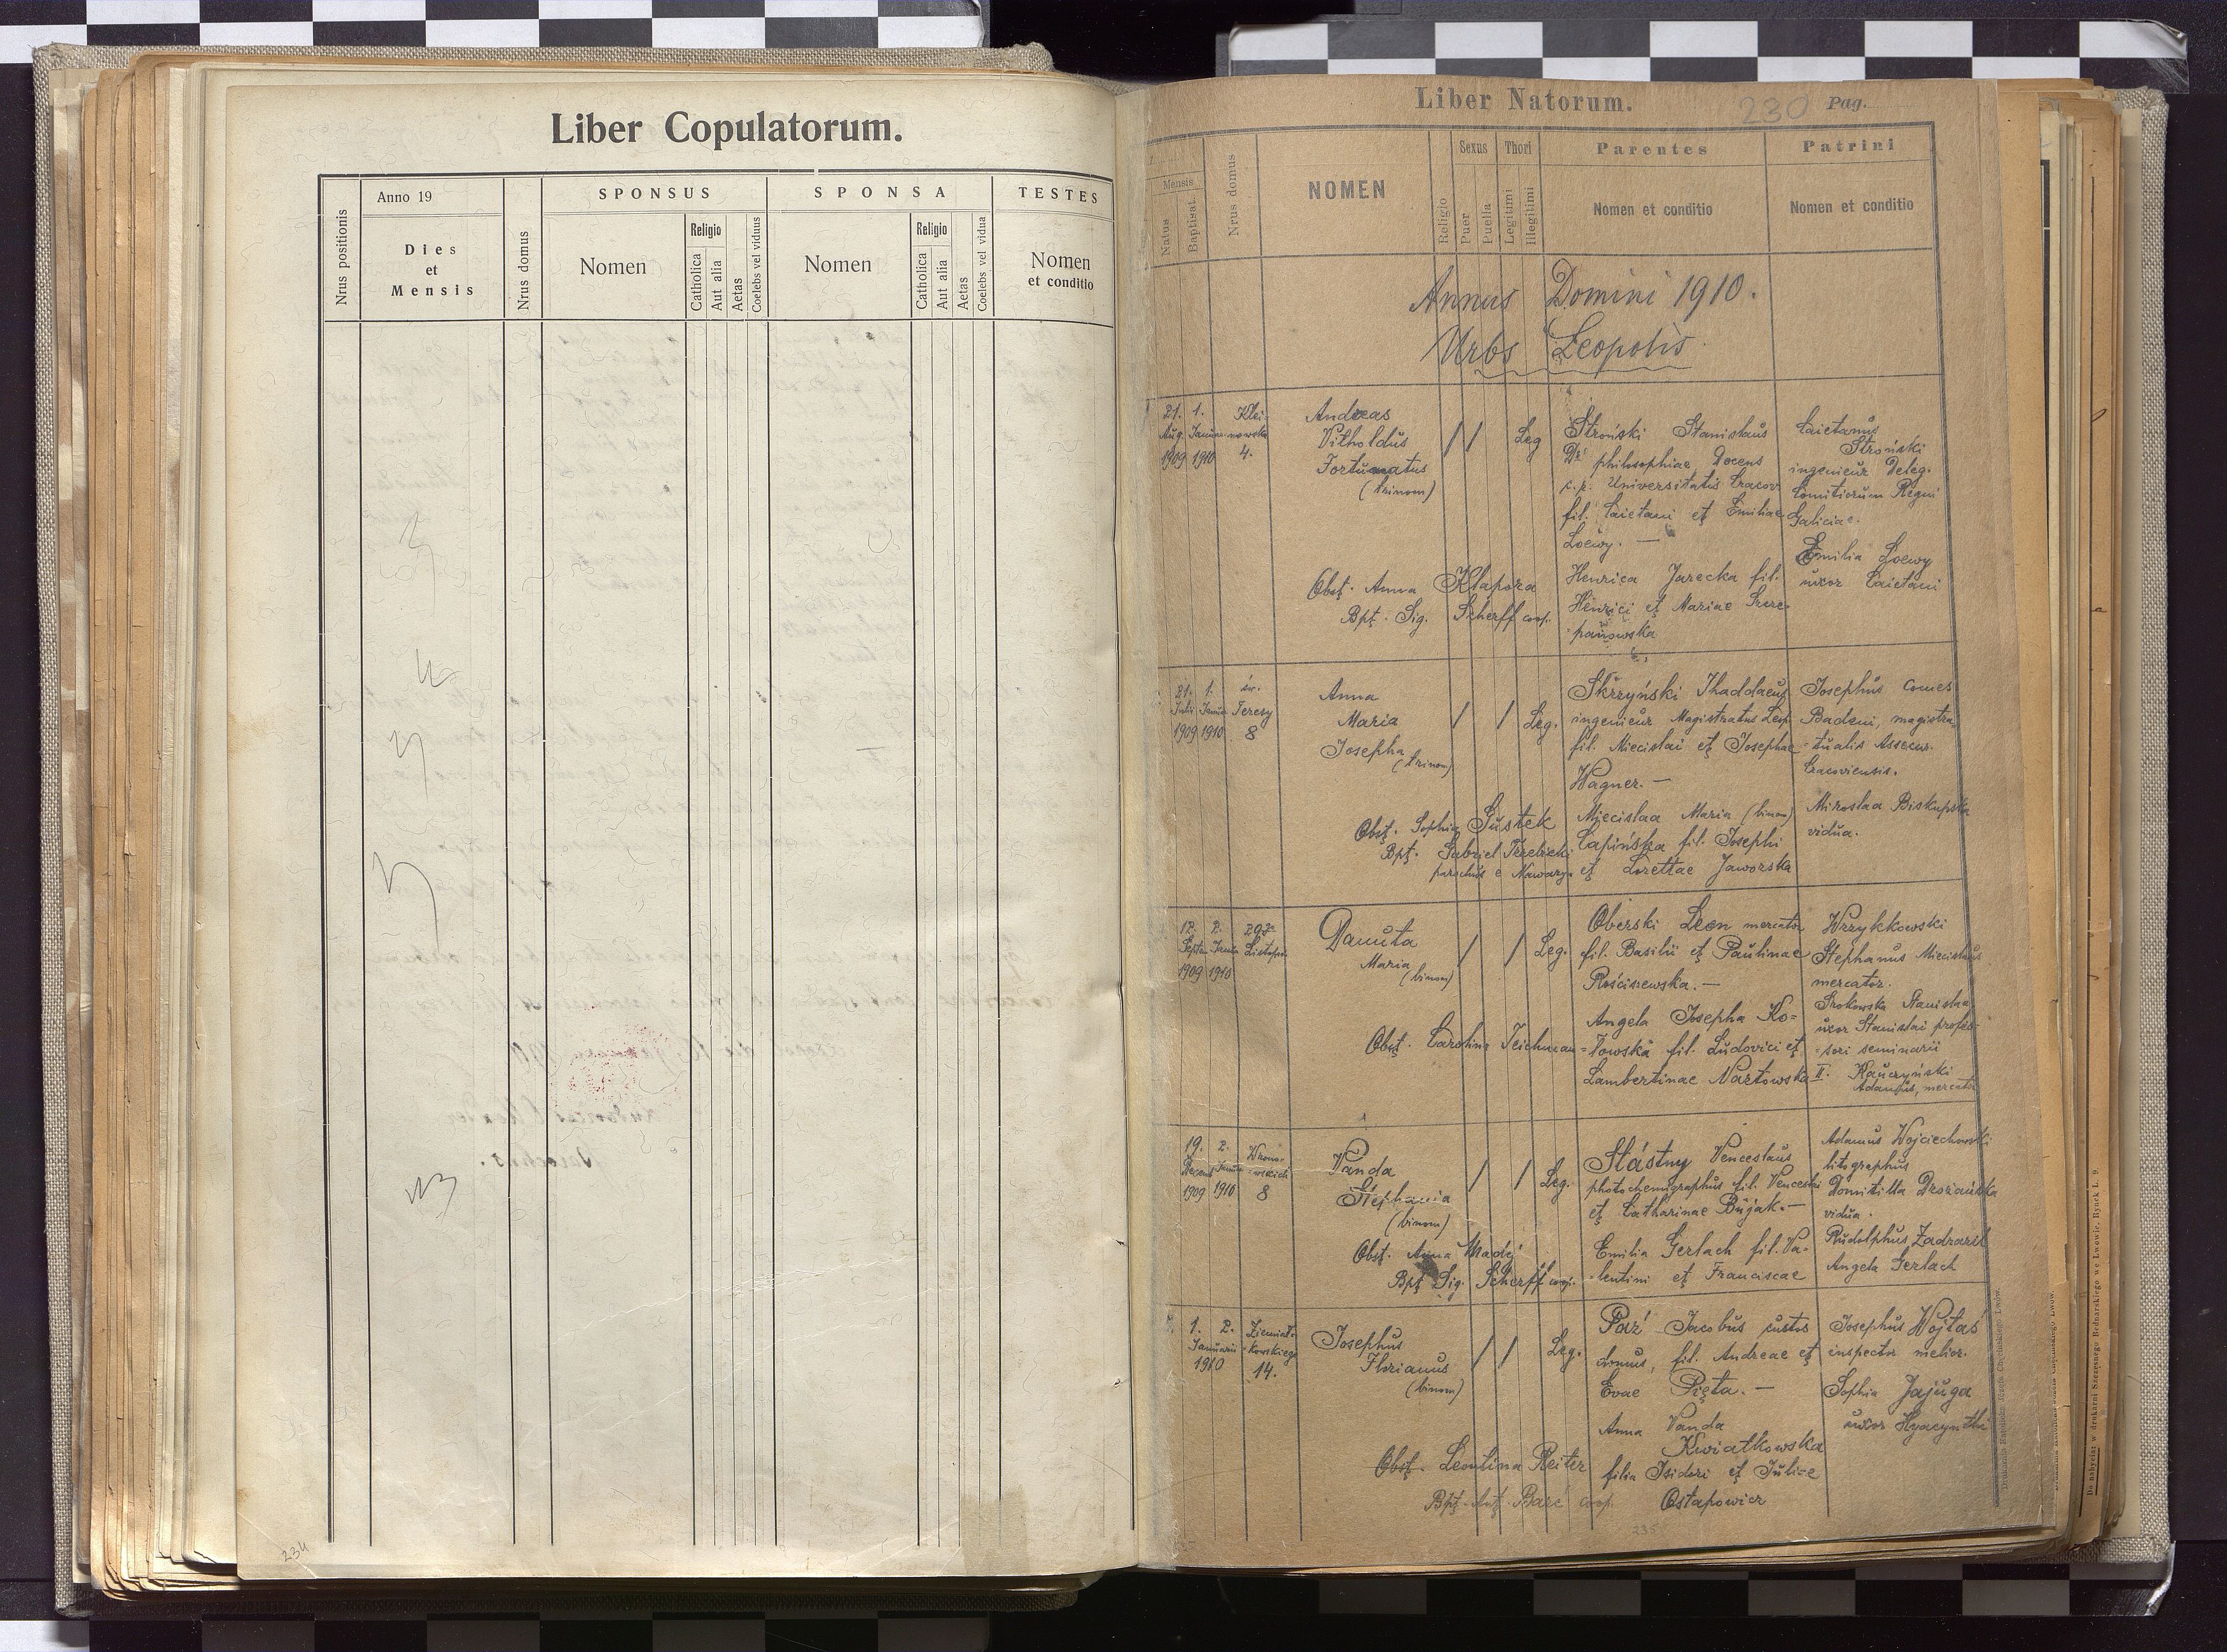 Liber Copulatorum.
Nrus positionis
Anno 19
Dies
et
Mensis
Nrus domus
SPONSUS
Nomen
Religio
Catholica
Aut alia
Aetas
Coelebs vel viduus
SPONSA
Nomen
Religio
Catholica
Aut alia
Aetas
Coelebs vel vidua
TESTES
Nomen
et conditio
234
Liber Natorum.
230 Pag.
Mensis
Natus
Baptisat.
Nrus domus
NOMEN
Religio
Sexus
Puer
Puella
Thori
Legitimi
Illegitimi
Parentes
Nomen et conditio
Patrini
Nomen et conditio
Annus Domini 1910.
Urbs Leopolis
21. 1.
Aug. Januar.
1909 1910
Klei-
nowska
4.
Andreas
Vitholdus
Fortunatus
(trinom)
Leg
Obst. Anna Kłapora
Bpt. Sig. Scherff coop.
Stroński Stanislaus
Dr philosophiae, Docens
c.r. Universitatis Cracov
fil. Caietani et Emiliae
Loewy. —
Henrica Jarecka fil.
Henrici et Mariae Szcze-
panowska
Caietanus
Stroński
ingenieur Deleg.
Comitiorum Regni
Galiciae.
Emilia Loewy
uxor Caietani
21. 1.
Julii Januar
1909 1910
św.
Teresy
8
Anna
Maria
Josepha
(trinom)
Leg.
Obst. Sophia Gustek
Bpt. Gabriel
parochus e
Skrzyński Thaddaeus
ingenieur Magistratus Leop.
fil. Miecislai et Josephae
Wagner. —
Miecislaa Maria (binom)
Łapińska fil. Josephi
et Lorettae Jaworska
Josephus comes
Badeni, magistra-
tualis Assecur.
Cracoviensis.
Miroslaa Biskupska
vidua.
12. 2.
Septem Janua
1909 1910
29go
Listopa.
Danuta
Maria
(binom)
Leg.
Obst. Carolina Teichman
Oberski Leon mercator
fil. Basilii et Paulinae
Rościszewska. —
Angela Josepha Ko=
=towska fil. Ludovici et
Lambertinae Nartowska
Stephanus Miecislaus
mercator.
Srokowska Stanislaa
uxor Stanislai profes-
sori seminarii
II. Kauczyński
Adamus, mercator
19. 2.
Decemb Janua
1909 1910
Wrono-
wskich
8
Vanda
Stephania
(binom)
Leg.
Obst. Anna Madej
Bpt. Sig. Scherff coop.
Stástny Venceslaus
photochemigraphus fil. Venceslai
et Catharinae Bujak. —
Emilia Gerlach fil. Va-
lentini et Franciscae
Adamus Wojciechowski
litographus
Domitilla Drozańska
vidua.
Rudolphus Zadrazil
Angela Gerlach
1. 2.
Januarii
1910
Ziemiał-
kowskiego
14.
Josephus
Florianus
(binom)
Leg.
Obst. Leontina Reiter
Bpt. Ant. Barć coop.
Paź Jacobus custos
domus, fil. Andreae et
Evae Pięta. —
Anna Vanda
Kwiatkowska
filia Isidori et Juliae
Ostapowicz
Josephus Wojtaś
inspector melior.
Sophia Jajuga
uxor Hyacynthi
235
Do nabycia: w drukarni Szczęsnego Bednarskiego we Lwowie, Rynek L. 9.